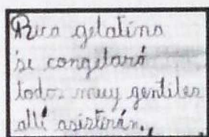 Rica gelatina
se congelará
todos muy gentiles
allí asistirán.